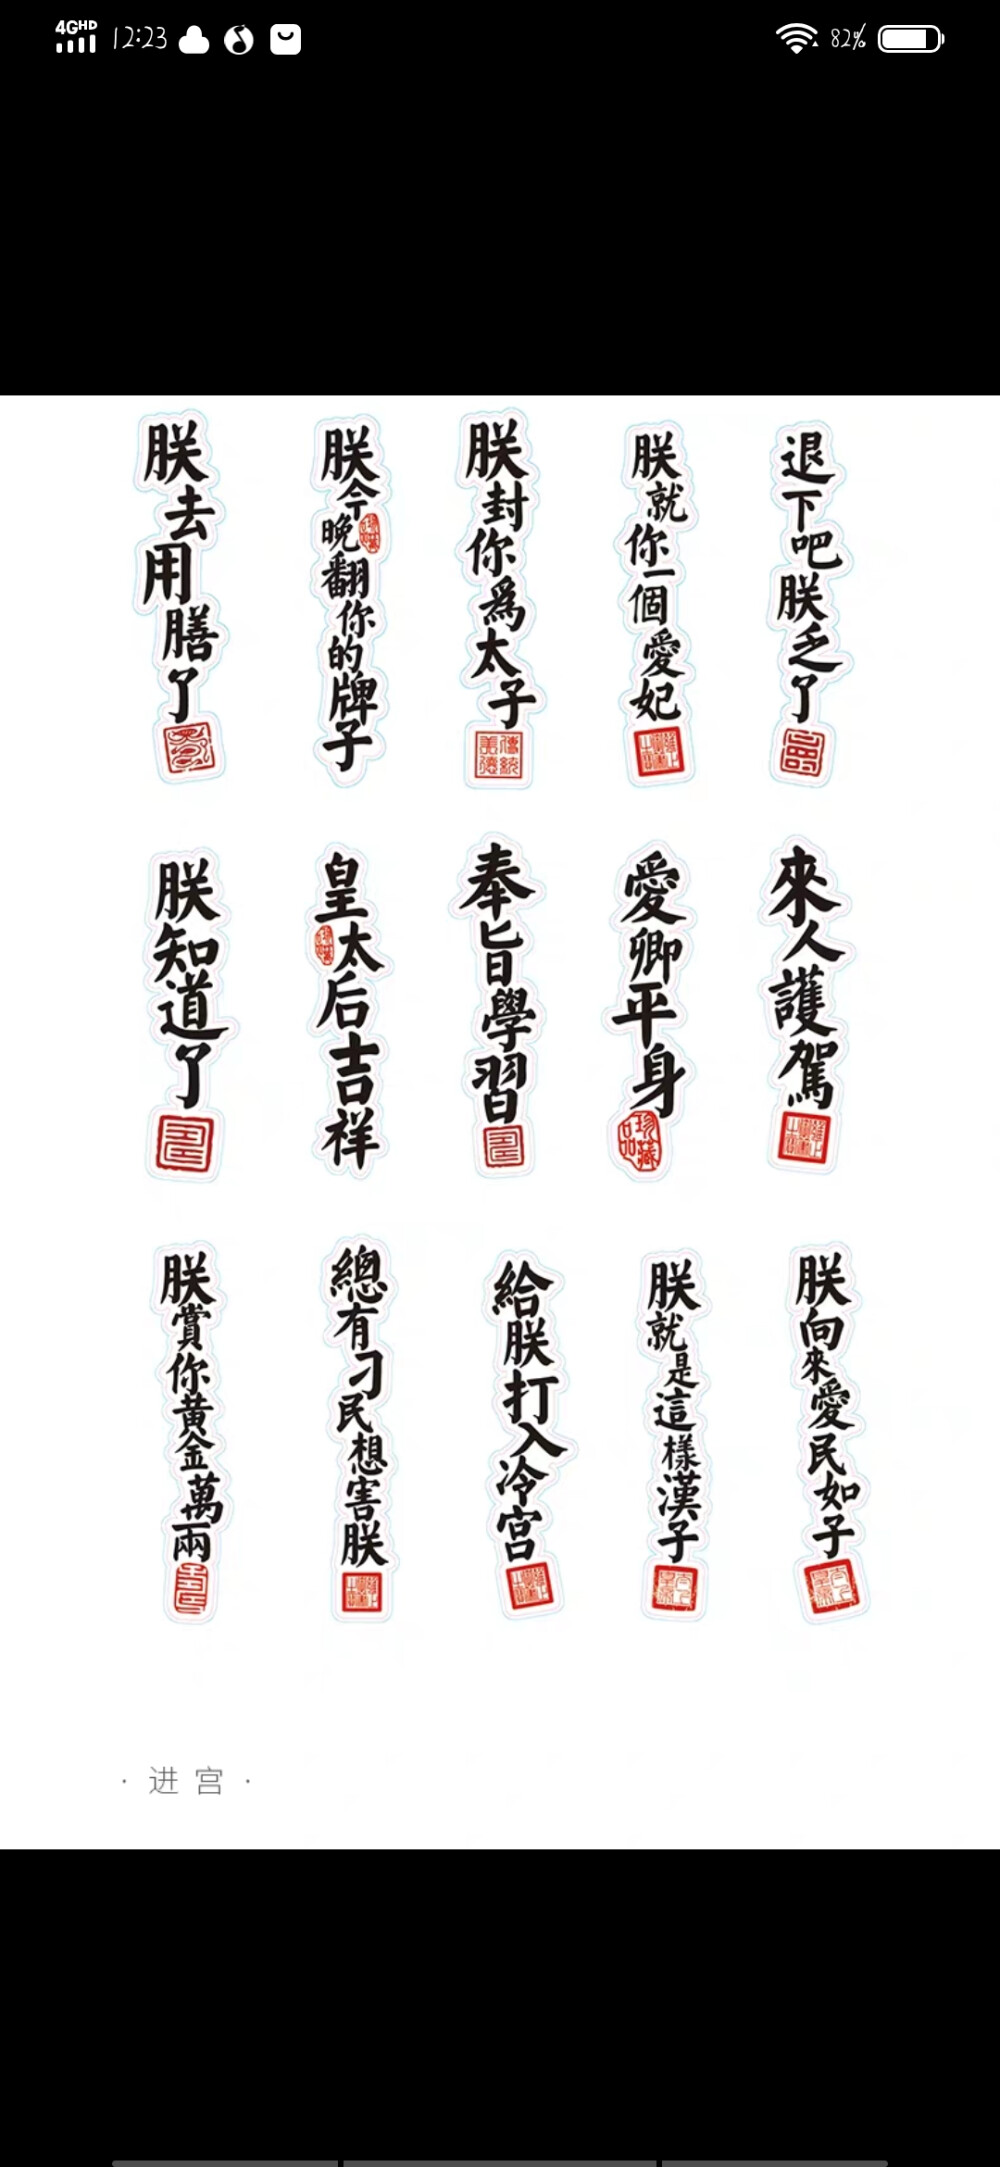 4GHD 12:23 82%
朕去用膳了
朕今晚翻你的牌子
朕封你為太子
傳統美德
朕就你一個愛妃
退下吧朕乏了
朕知道了
皇太后吉祥
奉旨學習
愛卿平身
珍藏品
來人護駕
朕賞你黄金萬兩
總有刁民想害朕
給朕打入冷宫
朕就是這樣漢子
朕向來愛民如子
· 进宫 ·